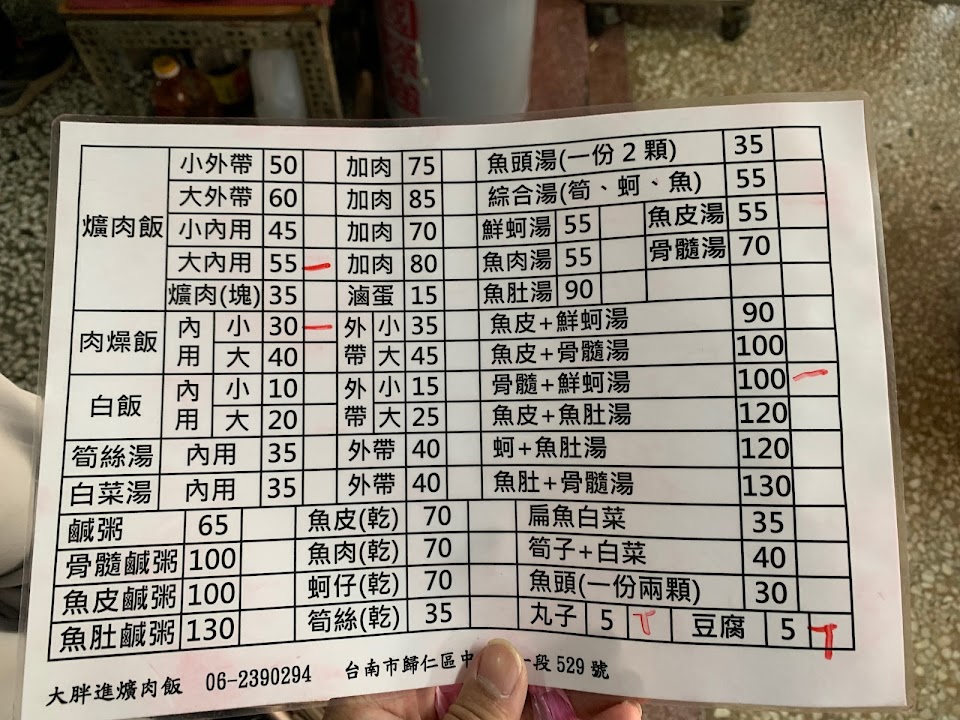 爌肉飯 小外帶 50 加肉 75 魚頭湯(一份2顆) 35
大外帶 60 加肉 85 綜合湯(筍、蚵、魚) 55
小內用 45 加肉 70 鮮蚵湯 55 魚皮湯 55
大內用 55 加肉 80 魚肉湯 55 骨髓湯 70
爌肉(塊) 35 滷蛋 15 魚肚湯 90
肉燥飯 內用 小 30 外帶 小 35 魚皮+鮮蚵湯 90
大 40 大 45 魚皮+骨髓湯 100
白飯 內用 小 10 外帶 小 15 骨髓+鮮蚵湯 100
大 20 大 25 魚皮+魚肚湯 120
筍絲湯 內用 35 外帶 40 蚵+魚肚湯 120
白菜湯 內用 35 外帶 40 魚肚+骨髓湯 130
鹹粥 65 魚皮(乾) 70 扁魚白菜 35
骨髓鹹粥 100 魚肉(乾) 70 筍子+白菜 40
魚皮鹹粥 100 蚵仔(乾) 70 魚頭(一份兩顆) 30
魚肚鹹粥 130 筍絲(乾) 35 丸子 5 豆腐 5
大胖進爌肉飯 06-2390294 台南市歸仁區中 一段 529 號